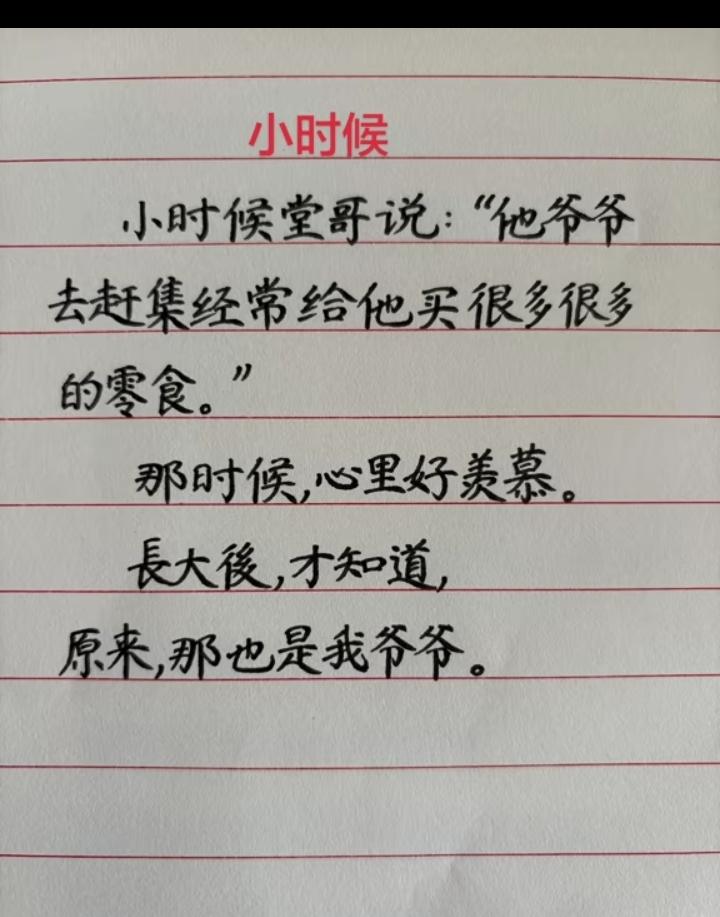 小时候
小时候堂哥说:“他爷爷
去赶集经常给他买很多很多
的零食。”
那时候,心里好羡慕。
長大後,才知道,
原来,那也是我爷爷。